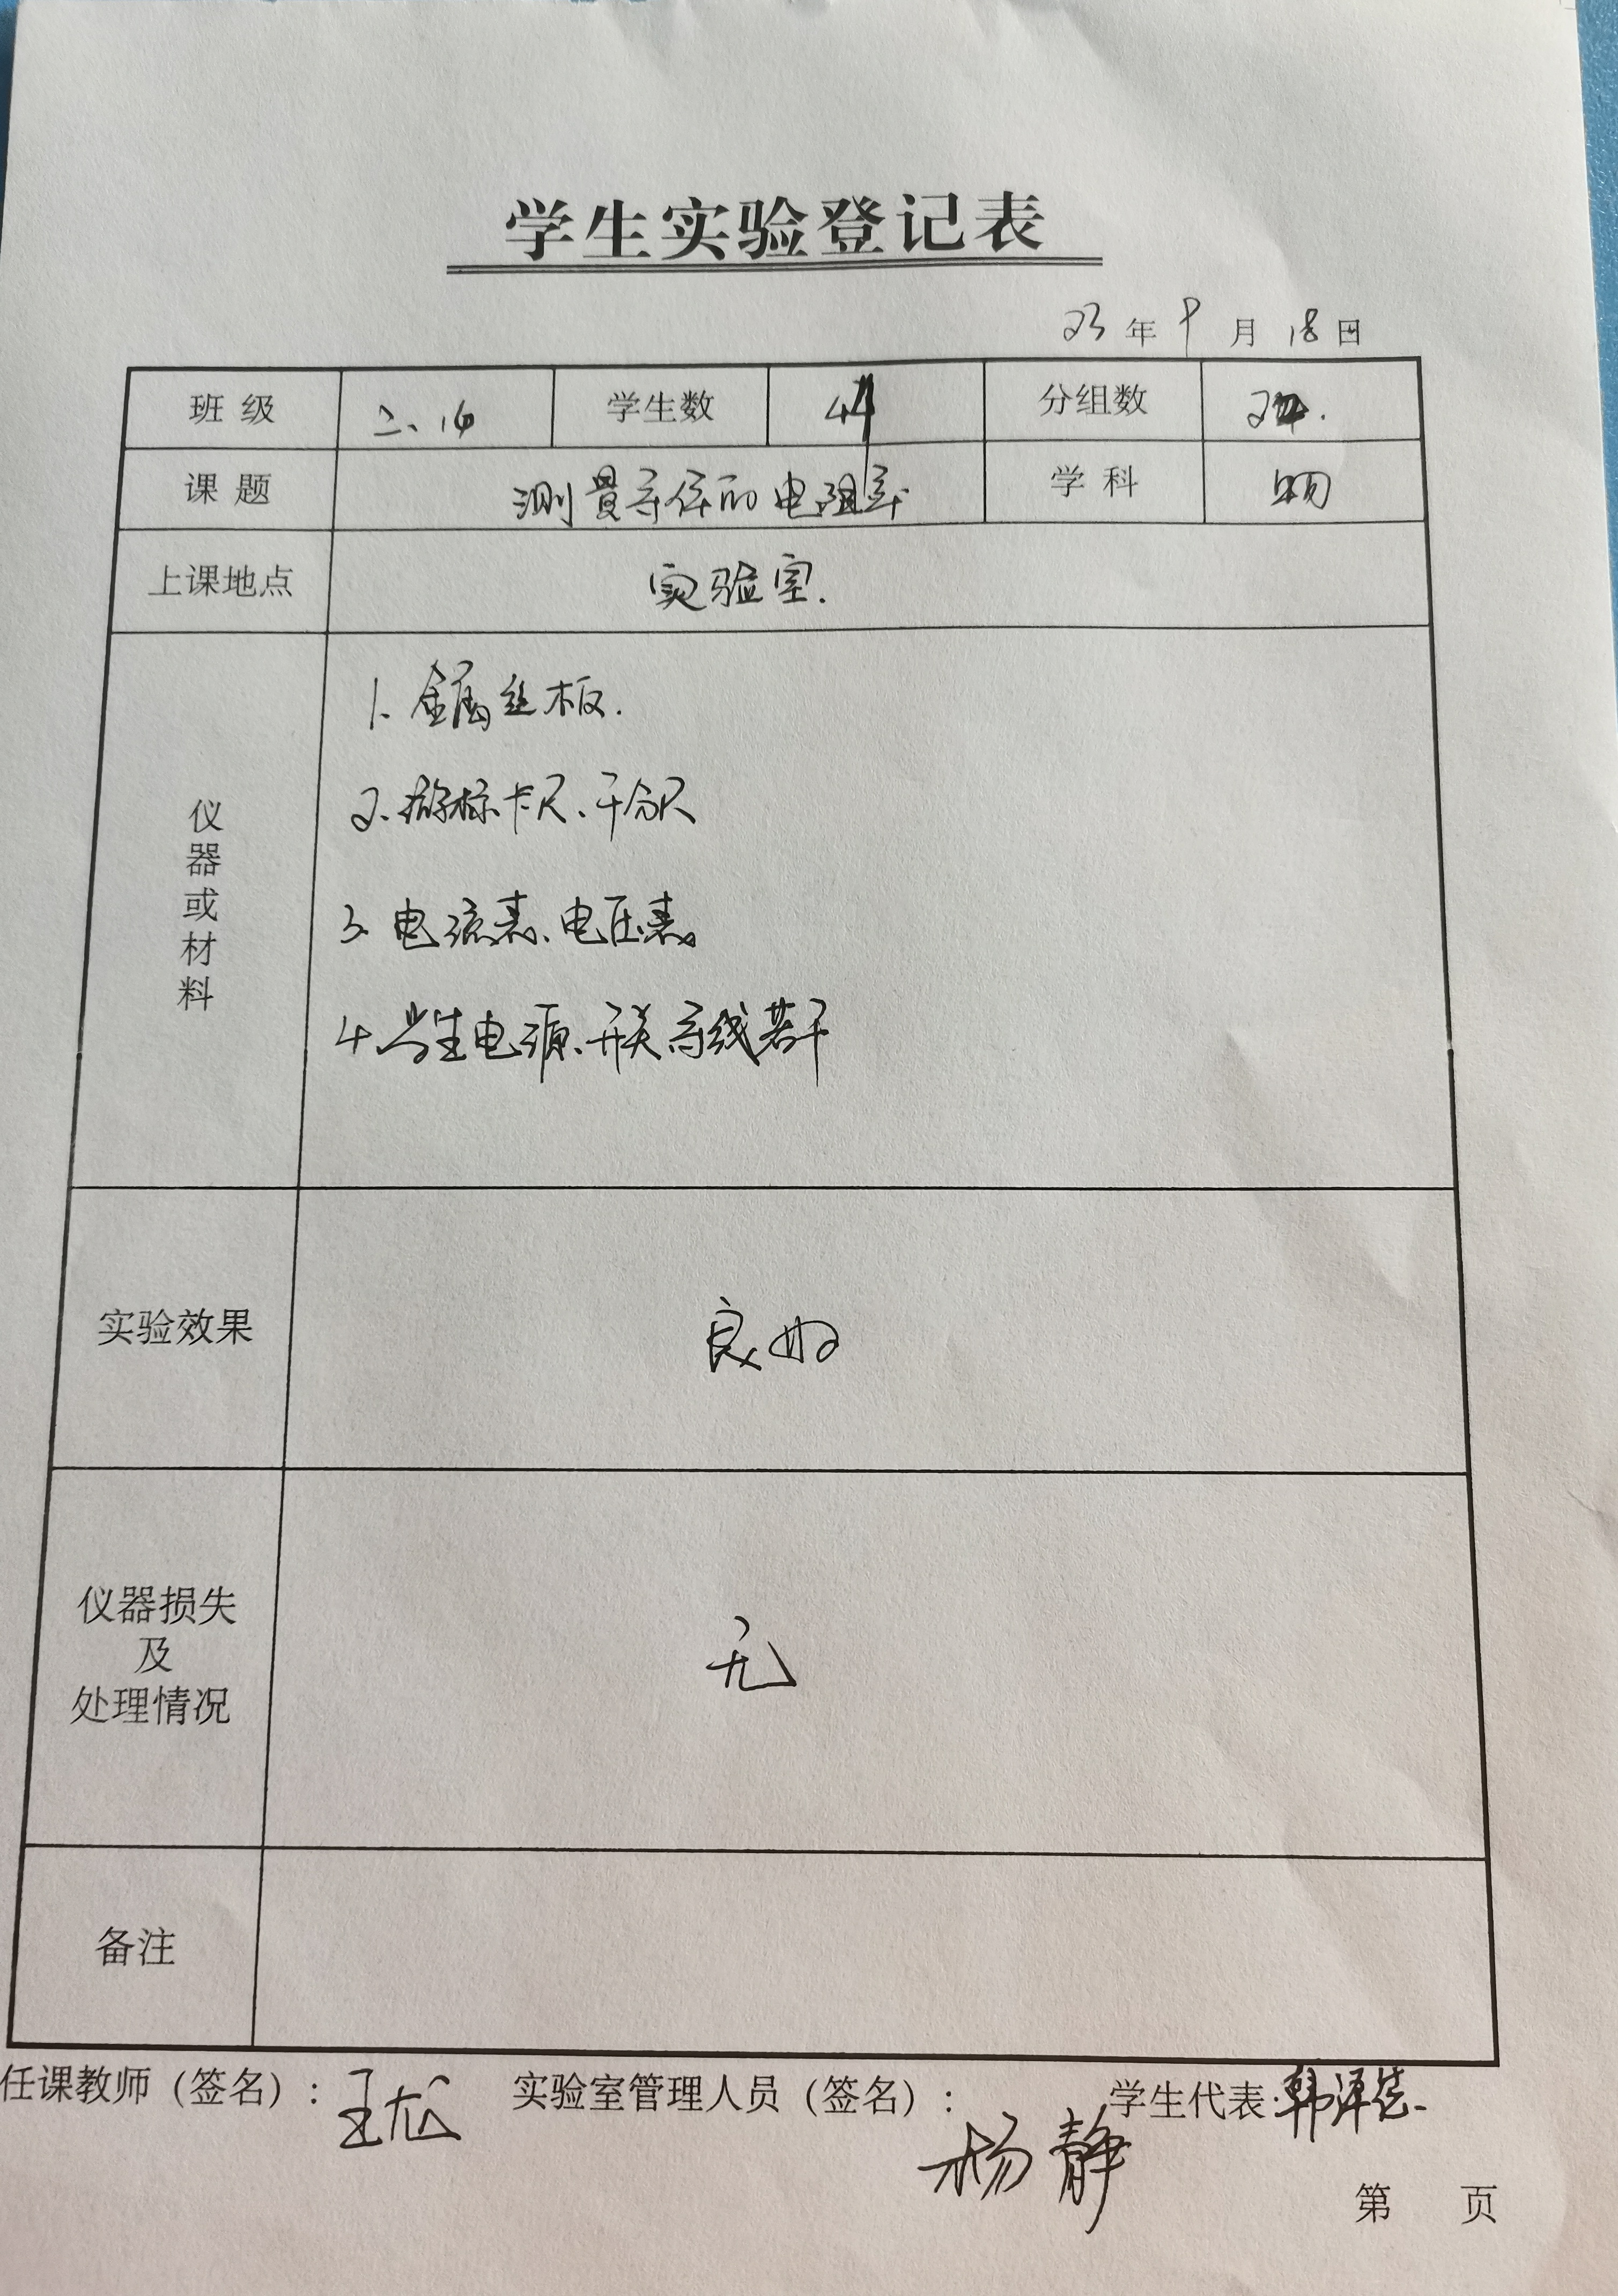 学生实验登记表
23年9月18日
班级 二、16 学生数 44 分组数
课题 测量导体的电阻率 学科 物
上课地点 实验室.
仪器或材料
1. 金属丝木板.
2. 游标卡尺、千分尺
3. 电流表、电压表
4. 学生电源、开关导线若干
实验效果 良好
仪器损失
及
处理情况
无
备注
任课教师（签名）：王 实验室管理人员（签名）：杨静 学生代表:韩泽
第 页